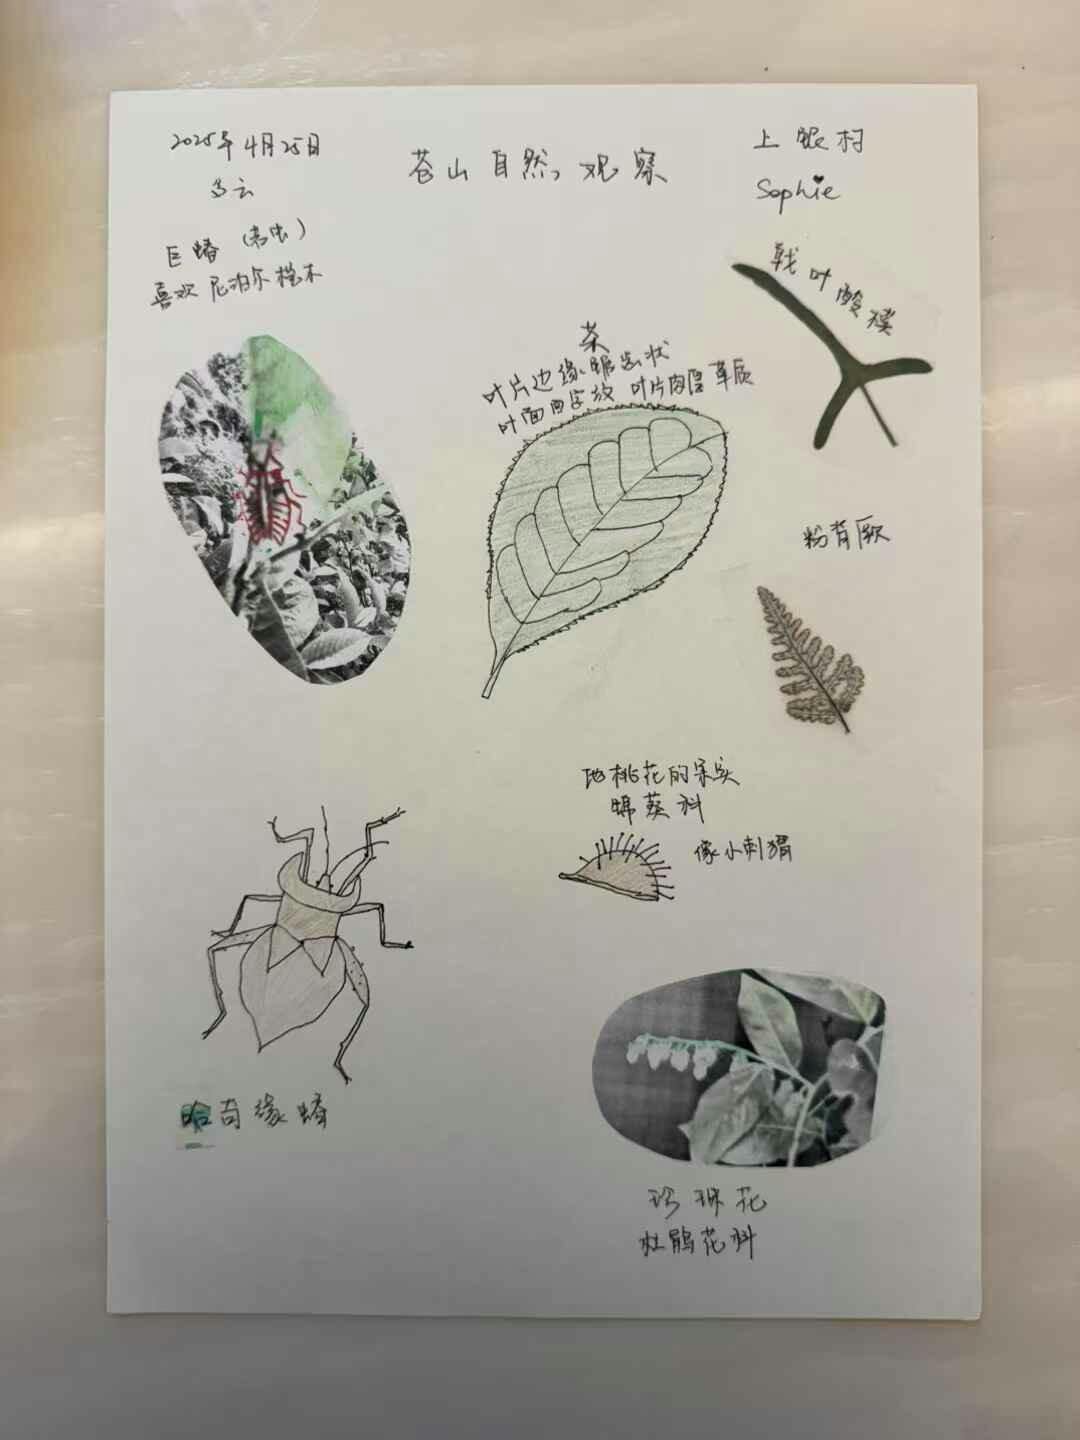 2025年4月25日
多云
苍山自然观察
上银村
Sophie
巨蝽（若虫）
喜欢尼泊尔桤木
戟叶酸模
茶
叶片边缘锯齿状
叶片肉厚革质
粉背蕨
地桃花的果实
锦葵科
像小刺猬
哈奇缘蝽
珍珠花
杜鹃花科